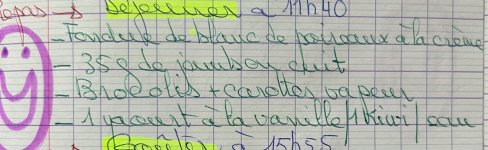 Repas → Déjeuner à 11h40
- Fondue de blanc de poireaux à la crème
- 35g de jambon cuit
- Brocolis + carottes vapeur
- 1 yaourt à la vanille / 1 Kiwi / eau
→ Goûter à 15h55